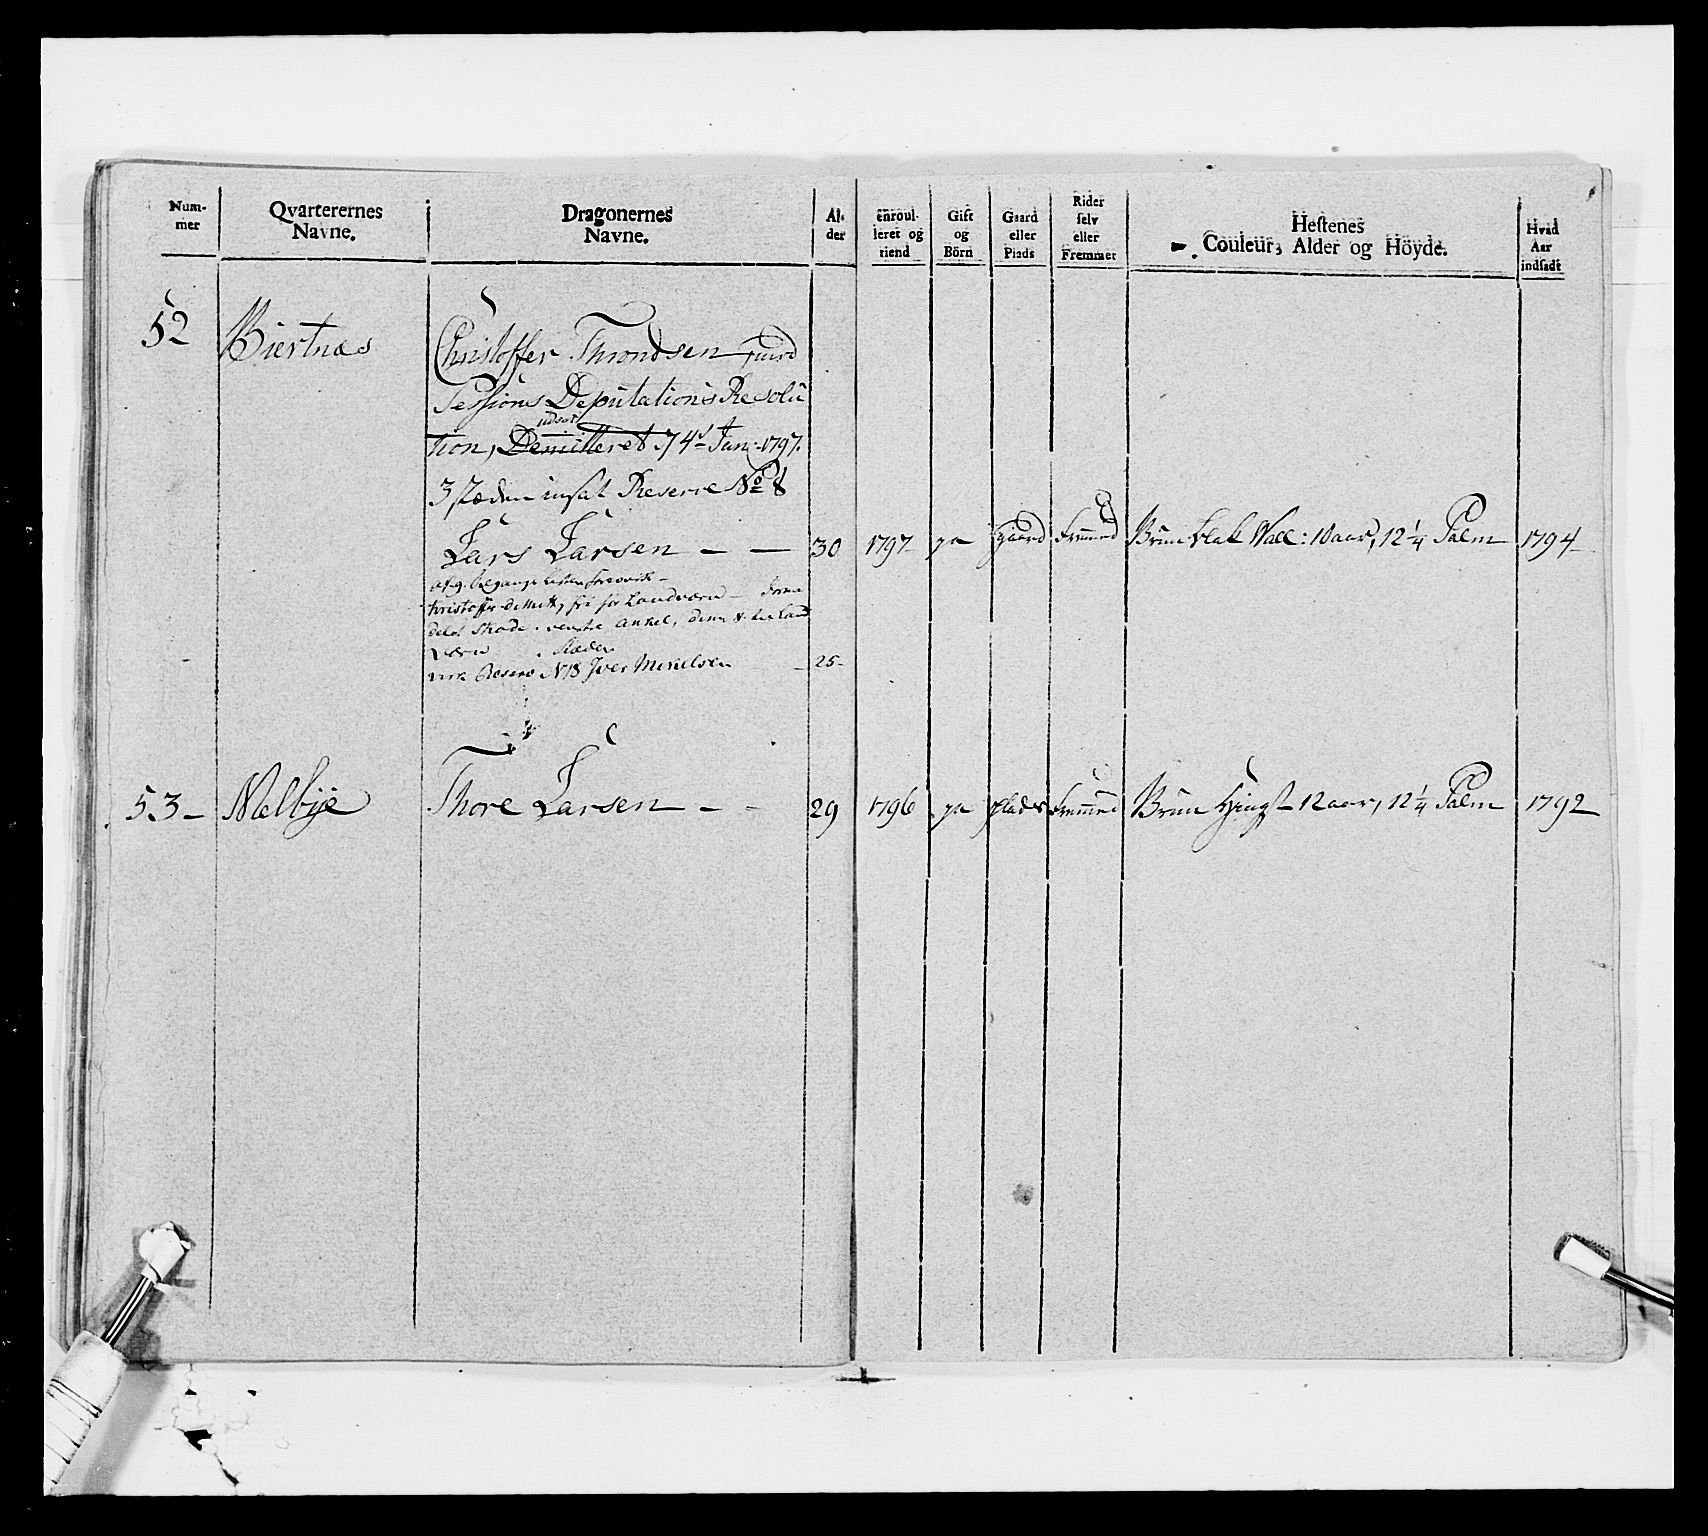 Num-
mer
Qvarterernes
Navne.
Dragonernes
Navne.
Al-
der
enroul-
leret og
tiend
Gift
og
Börn
Gaard
eller
Plads
Rider
selv
eller
Fremmet
Hestenes
Couleur, Alder og Höyde.
Hvad
Aar
indsadt
52
Biertnæs
Christoffer Throndsen
Sessions Deputations Resolu
udsat
tion, Demitteret 4 Jan: 1797.
Stæden insat Reserve No 8
Lars Larsen - — 30 1797 ja gaard Fremed Bruun blak Vall: 10 aar, 12 1/4 Palm 1794
fri for Landværn
Skade venstre Ankel,
værn Stæden
Reserv N 18 Iver Mikelsen - 25-
53 - Melbye Thore Larsen - - 29 1796 ja plads Fremed Bruun Hingst 12 aar, 12 1/4 Palm 1792